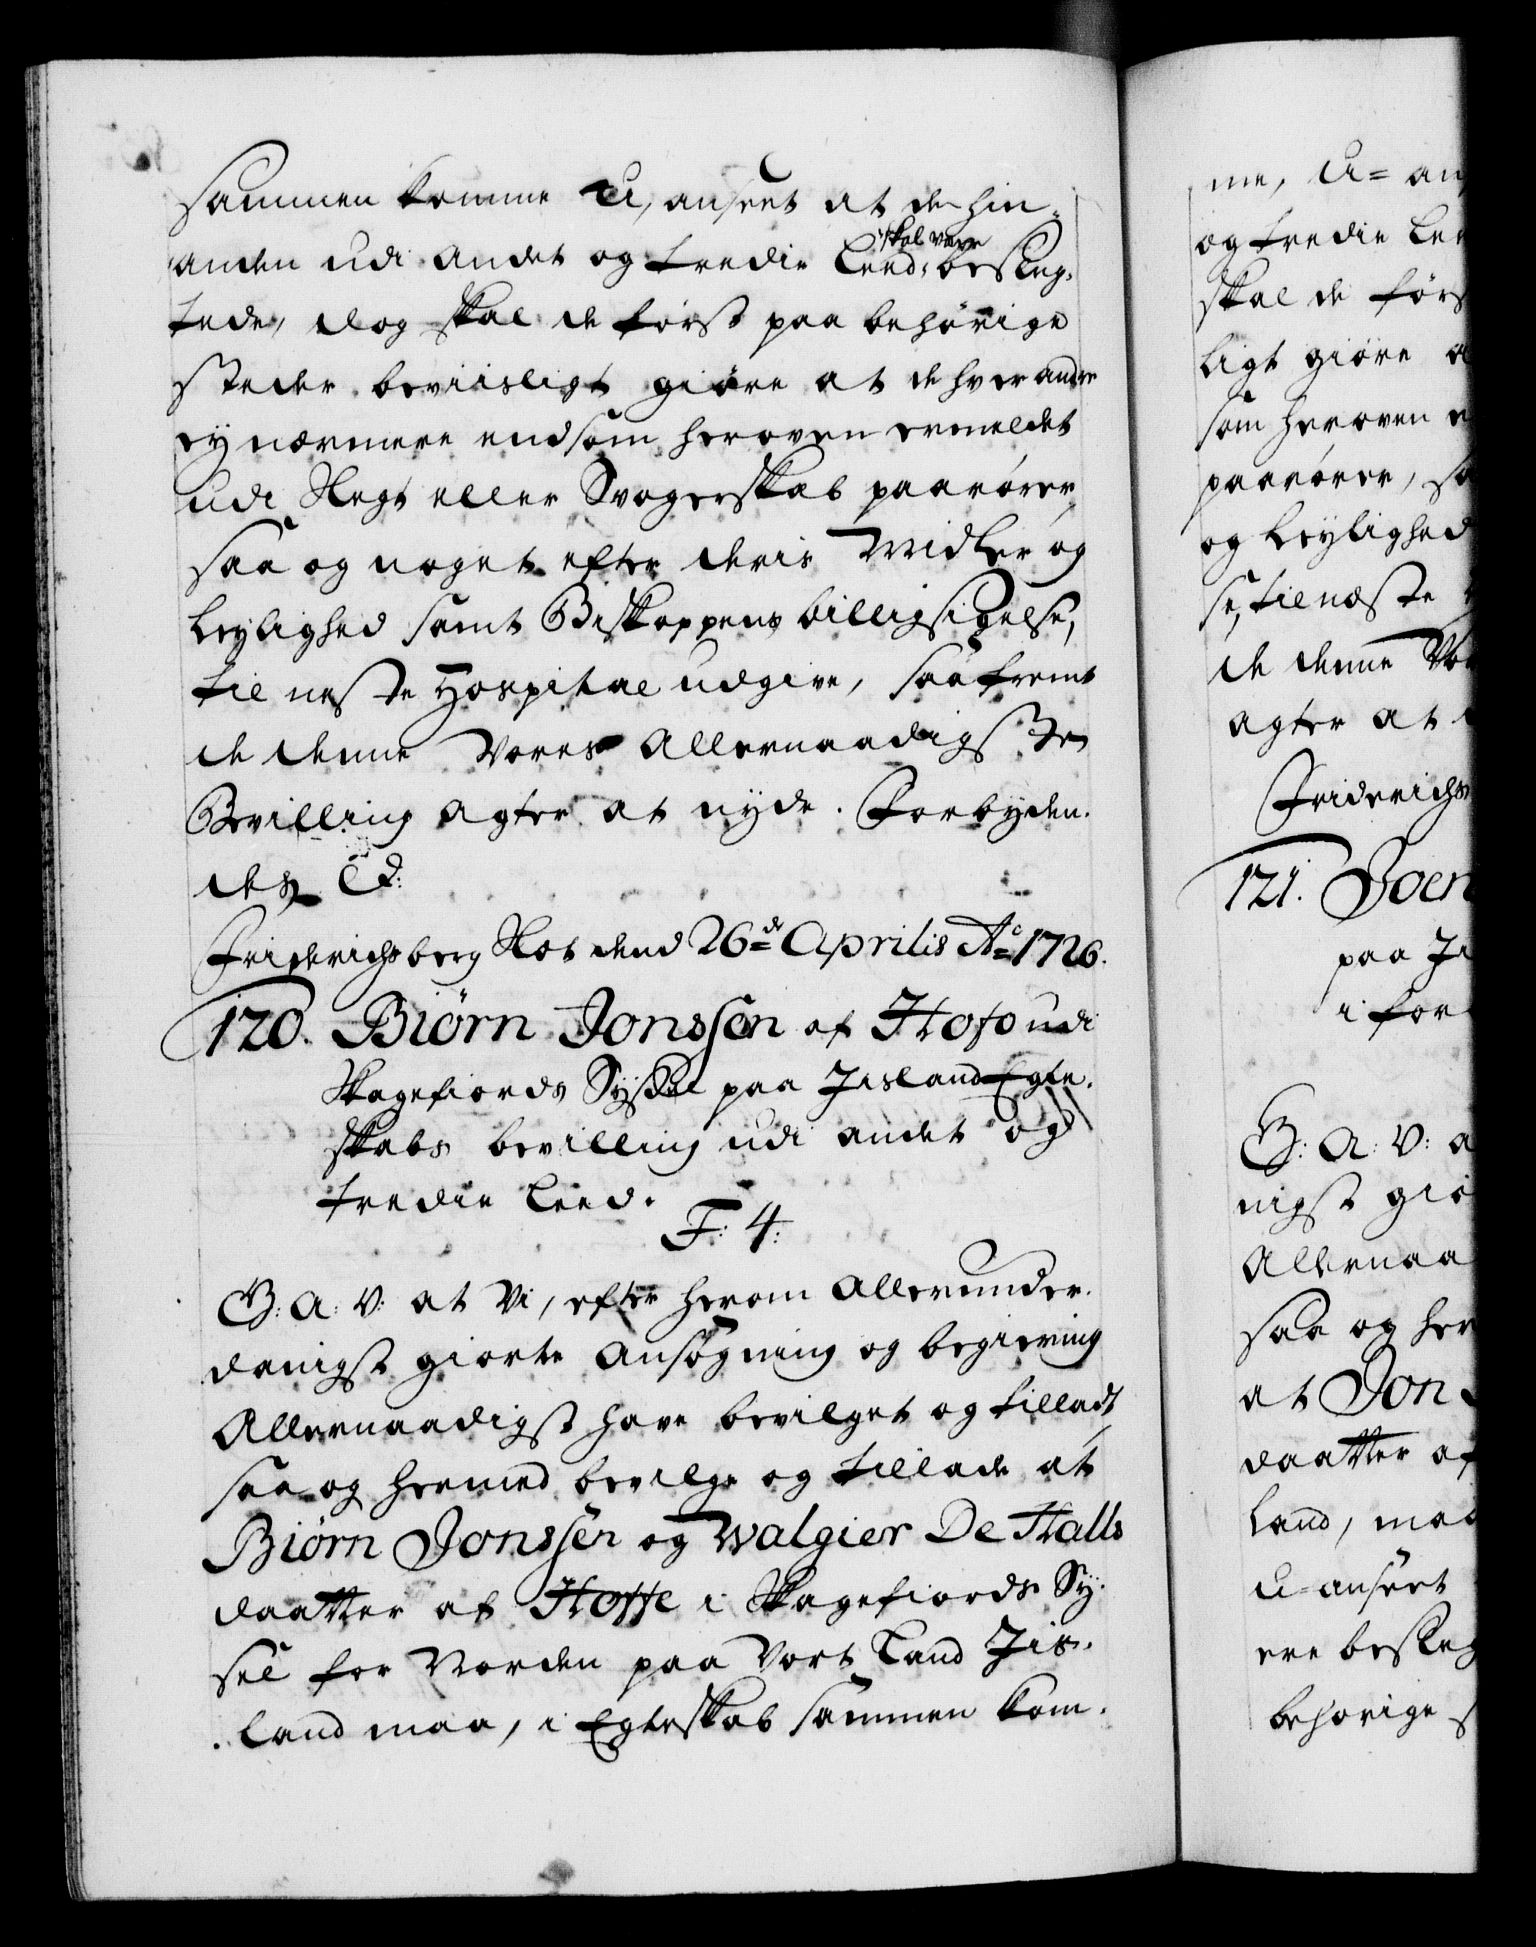 sammen komme U, anseet at de hin-
anden udi andet og tredie Leed skal være besleg-
tede, dog skal de først paa behørige
steder beviisligt giøre at de hverandre
ey nærmere end som heroven ermeldet
udi Slegt eller Svogerskab paarører,
saa og noget efter deris Midler og
Leylighed samt Biskoppens billigsigelse,
til neste Hospital udgive, saafremt
de denne Vores Allernaadigste
Bevilling agter at nyde. Forbyden-
des &:
Friderichsberg Slot dend 26de Aprilis Ao 1726.
120. Biørn Jonssøn af Hofo udi
Skagefiords Syssel paa Jisland Egte-
skabs bevilling udi andet og
tredie Leed.
F: 4:
G: A: V: at Vi, efter herom Allerunder-
danigst giorte Ansøgning og begiering
Allernaadigst have bevilget og tilladt,
saa og hermed bevilge og tillade at
Biørn Jonssøn og Walgier De Halls
daatter af Hoffe i Skagefiords Sy-
sel for Norden paa Vort Land Jis-
land maa, i Egteskab sammen kom-
me, U=an
og tredie Lee
skal de førs
ligt giøre a
som heroven e
paarører, sa
og Leylighed
se, til næste
de denne Vor
agter at
Friderichs
121. Joen
paa Ji
i for
G: A: V: a
nigst gio
Allernaa
saa og her
at Jon
daatter af
Land, maa
U=anseet
ere besleg
behørige s